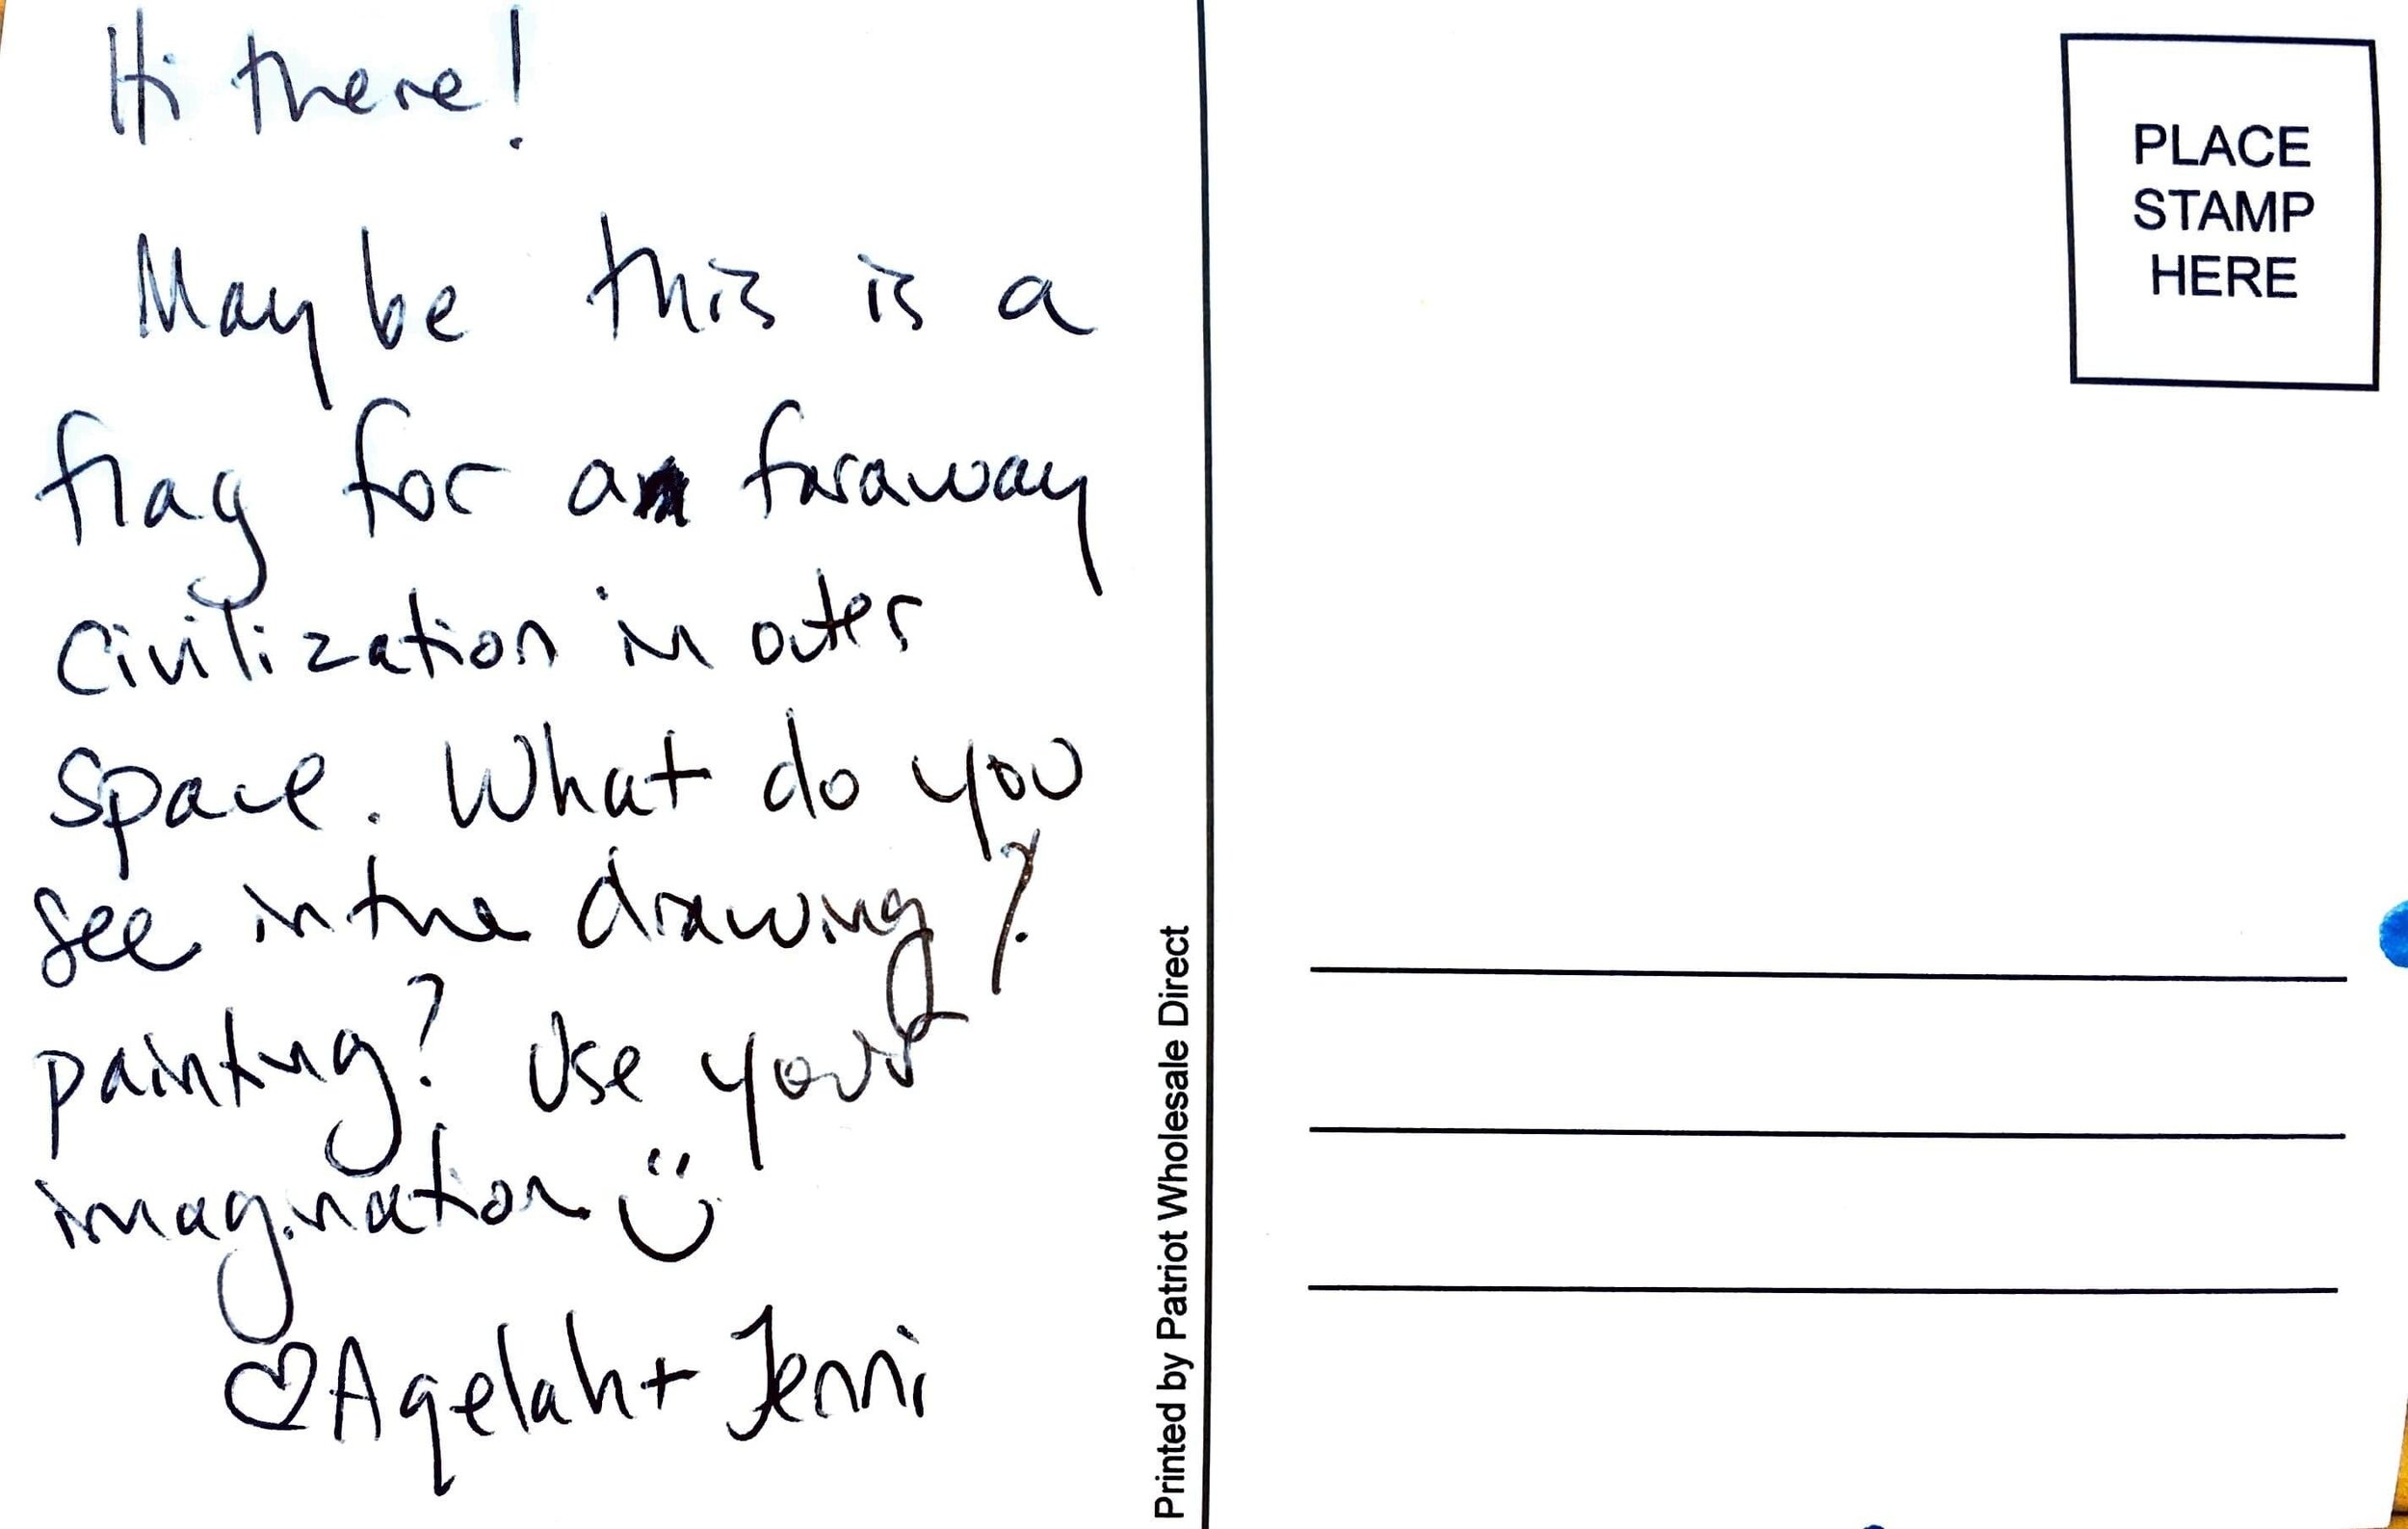 Hi there!
Maybe this is a
flag for a faraway
civilization in outer
space. What do you
see in the drawing?
painting? Use your
imagination
♡Aqelah + Jenni
Printed by Patriot Wholesale Direct
PLACE
STAMP
HERE